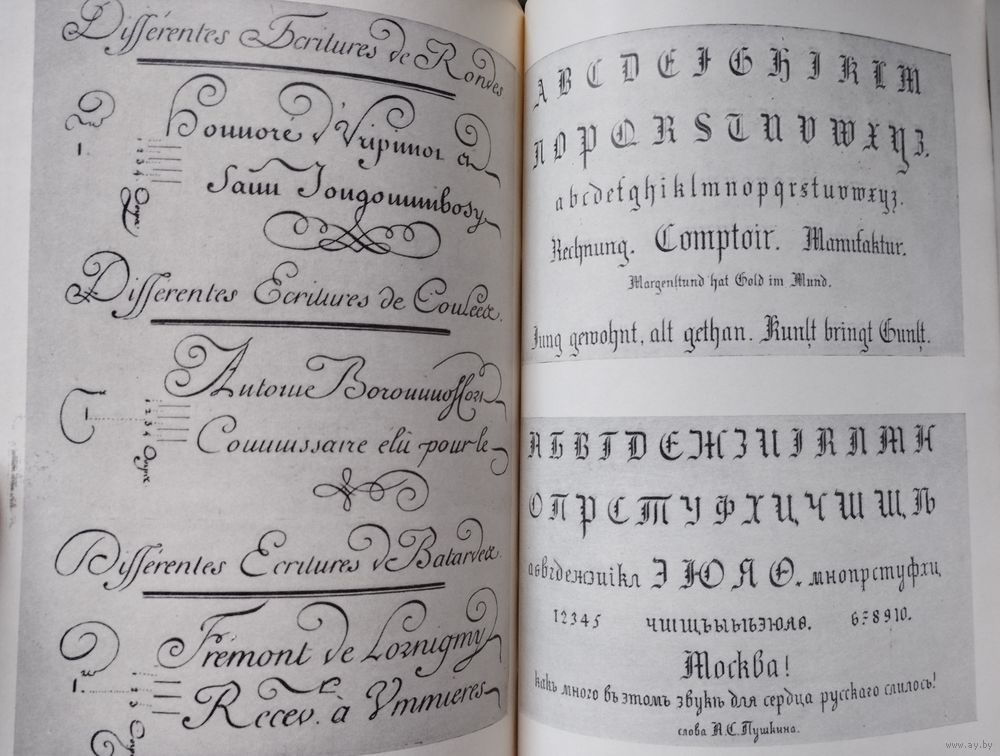 Différentes Ecritures de Rondes
Honnoré d'Uripinot
1 2 3 4
Différentes Ecritures de Coulées.
Antoine
1 2 3 4
Commissaire élû pour le
Différentes Ecritures d Batardes.
Frémont de Loznigmy
Recev. à Ymmieres
A B C D E F G H I K L M
N O P Q R S T U V W X Y Z.
a b c d e f g h i k l m n o p q r s t u v w x y z.
Rechnung. Comptoir. Manufaktur.
Morgenstund hat Gold im Mund.
Jung gewohnt, alt gethan. Kunst bringt Gunst.
А Б В Г Д Е Ж З И І К Л М Н
О П Р С Т У Ф Х Ц Ч Ш Щ Ъ
а б в г д е ж з и і к л Э Ю Я Ѳ. м н о п р с т у ф х ц
1 2 3 4 5 ч ш щ ъ ы ь ѣ э ю я ѳ. 6 7 8 9 10.
Москва!
какъ много въ этомъ звукѣ для сердца русскаго слилось!
слова А.С.Пушкина.
www.ay.by